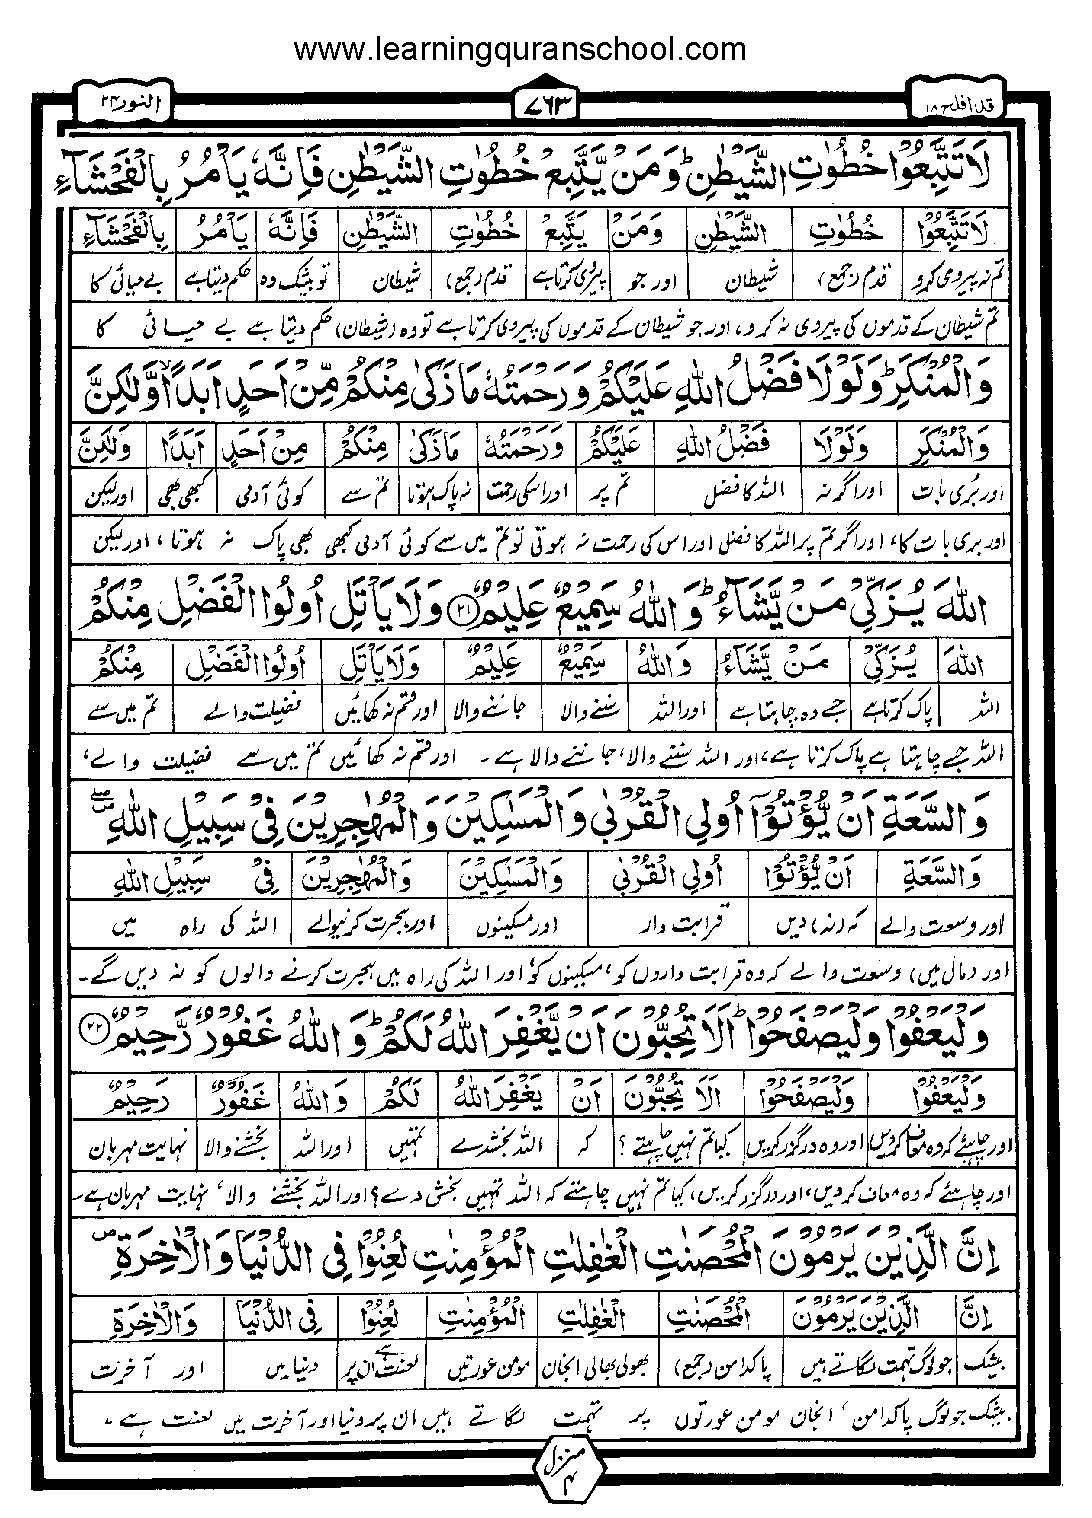 www.learningquranschool.com
قد افلح ۱۸ ۷۶۳ النور ۲۴
لَا تَتَّبِعُوْا خُطُوٰتِ الشَّيْطٰنِ ؕ وَمَنْ يَّتَّبِعْ خُطُوٰتِ الشَّيْطٰنِ فَاِنَّهٗ يَاْمُرُ بِالْفَحْشَآءِ
لَا تَتَّبِعُوْا خُطُوٰتِ الشَّيْطٰنِ وَمَنْ يَّتَّبِعْ خُطُوٰتِ الشَّيْطٰنِ فَاِنَّهٗ يَاْمُرُ بِالْفَحْشَآءِ
تم نہ پیروی کرو قدم (جمع) شیطان اور جو پیروی کرتا ہے قدم (جمع) شیطان تو بیشک وہ حکم دیتا ہے بے حیائی کا
تم شیطان کے قدموں کی پیروی نہ کرو، اور جو شیطان کے قدموں کی پیروی کرتا ہے تو وہ (شیطان) حکم دیتا ہے بے حیائی کا
وَالْمُنْكَرِ ؕ وَلَوْلَا فَضْلُ اللّٰهِ عَلَيْكُمْ وَرَحْمَتُهٗ مَا زَكٰى مِنْكُمْ مِّنْ اَحَدٍ اَبَدًا ۙ وَّلٰكِنَّ
وَالْمُنْكَرِ وَلَوْلَا فَضْلُ اللّٰهِ عَلَيْكُمْ وَرَحْمَتُهٗ مَا زَكٰى مِنْكُمْ مِنْ اَحَدٍ اَبَدًا وَلٰكِنَّ
اور بُری بات اور اگر نہ اللہ کا فضل تم پر اور اسکی رحمت نہ پاک ہوتا تم سے کوئی آدمی کبھی بھی اور لیکن
اور بری بات کا، اور اگر تم پر اللہ کا فضل اور اس کی رحمت نہ ہوتی تو تم میں سے کوئی آدمی کبھی بھی پاک نہ ہوتا، اور لیکن
اللّٰهَ يُزَكِّيْ مَنْ يَّشَآءُ ؕ وَاللّٰهُ سَمِيْعٌ عَلِيْمٌ ۲۱ وَلَا يَاْتَلِ اُولُوا الْفَضْلِ مِنْكُمْ
اللّٰهَ يُزَكِّيْ مَنْ يَّشَآءُ وَاللّٰهُ سَمِيْعٌ عَلِيْمٌ وَلَا يَاْتَلِ اُولُوا الْفَضْلِ مِنْكُمْ
اللہ پاک کرتا ہے جسے وہ چاہتا ہے اور اللہ سننے والا جاننے والا اور قسم نہ کھائیں فضیلت والے تم میں سے
اللہ جسے چاہتا ہے پاک کرتا ہے، اور اللہ سننے والا، جاننے والا ہے۔ اور قسم نہ کھائیں تم میں سے فضیلت والے،
وَالسَّعَةِ اَنْ يُّؤْتُوْٓا اُولِي الْقُرْبٰى وَالْمَسٰكِيْنَ وَالْمُهٰجِرِيْنَ فِيْ سَبِيْلِ اللّٰهِ ۖ
وَالسَّعَةِ اَنْ يُّؤْتُوْا اُولِي الْقُرْبٰى وَالْمَسٰكِيْنَ وَالْمُهٰجِرِيْنَ فِيْ سَبِيْلِ اللّٰهِ
اور وسعت والے کہ (نہ) دیں قرابت دار اور مسکینوں اور ہجرت کرنیوالے اللہ کی راہ میں
اور (مال میں) وسعت والے کہ وہ قرابت داروں کو، مسکینوں کو اور اللہ کی راہ میں ہجرت کرنے والوں کو نہ دیں گے۔
وَلْيَعْفُوْا وَلْيَصْفَحُوْا ؕ اَلَا تُحِبُّوْنَ اَنْ يَّغْفِرَ اللّٰهُ لَكُمْ ؕ وَاللّٰهُ غَفُوْرٌ رَّحِيْمٌ ۲۲
وَلْيَعْفُوْا وَلْيَصْفَحُوْا اَلَا تُحِبُّوْنَ اَنْ يَّغْفِرَ اللّٰهُ لَكُمْ وَاللّٰهُ غَفُوْرٌ رَحِيْمٌ
اور چاہیئے کہ وہ معاف کردیں اور وہ درگزر کریں کیا تم نہیں چاہتے؟ کہ اللہ بخشدے تمہیں اور اللہ بخشنے والا نہایت مہربان
اور چاہیئے کہ وہ معاف کردیں، اور درگزر کریں، کیا تم نہیں چاہتے کہ اللہ تمہیں بخش دے؟ اور اللہ بخشنے والا، نہایت مہربان ہے۔
اِنَّ الَّذِيْنَ يَرْمُوْنَ الْمُحْصَنٰتِ الْغٰفِلٰتِ الْمُؤْمِنٰتِ لُعِنُوْا فِي الدُّنْيَا وَالْاٰخِرَةِ ۪
اِنَّ الَّذِيْنَ يَرْمُوْنَ الْمُحْصَنٰتِ الْغٰفِلٰتِ الْمُؤْمِنٰتِ لُعِنُوْا فِي الدُّنْيَا وَالْاٰخِرَةِ
بیشک جو لوگ تہمت لگاتے ہیں پاکدامن (جمع) بھولی بھالی انجان مومن عورتیں لعنت ہے ان پر دنیا میں اور آخرت
بیشک جو لوگ پاکدامن، انجان مومن عورتوں پر تہمت لگاتے ہیں ان پر دنیا اور آخرت میں لعنت ہے۔
منزل ۴